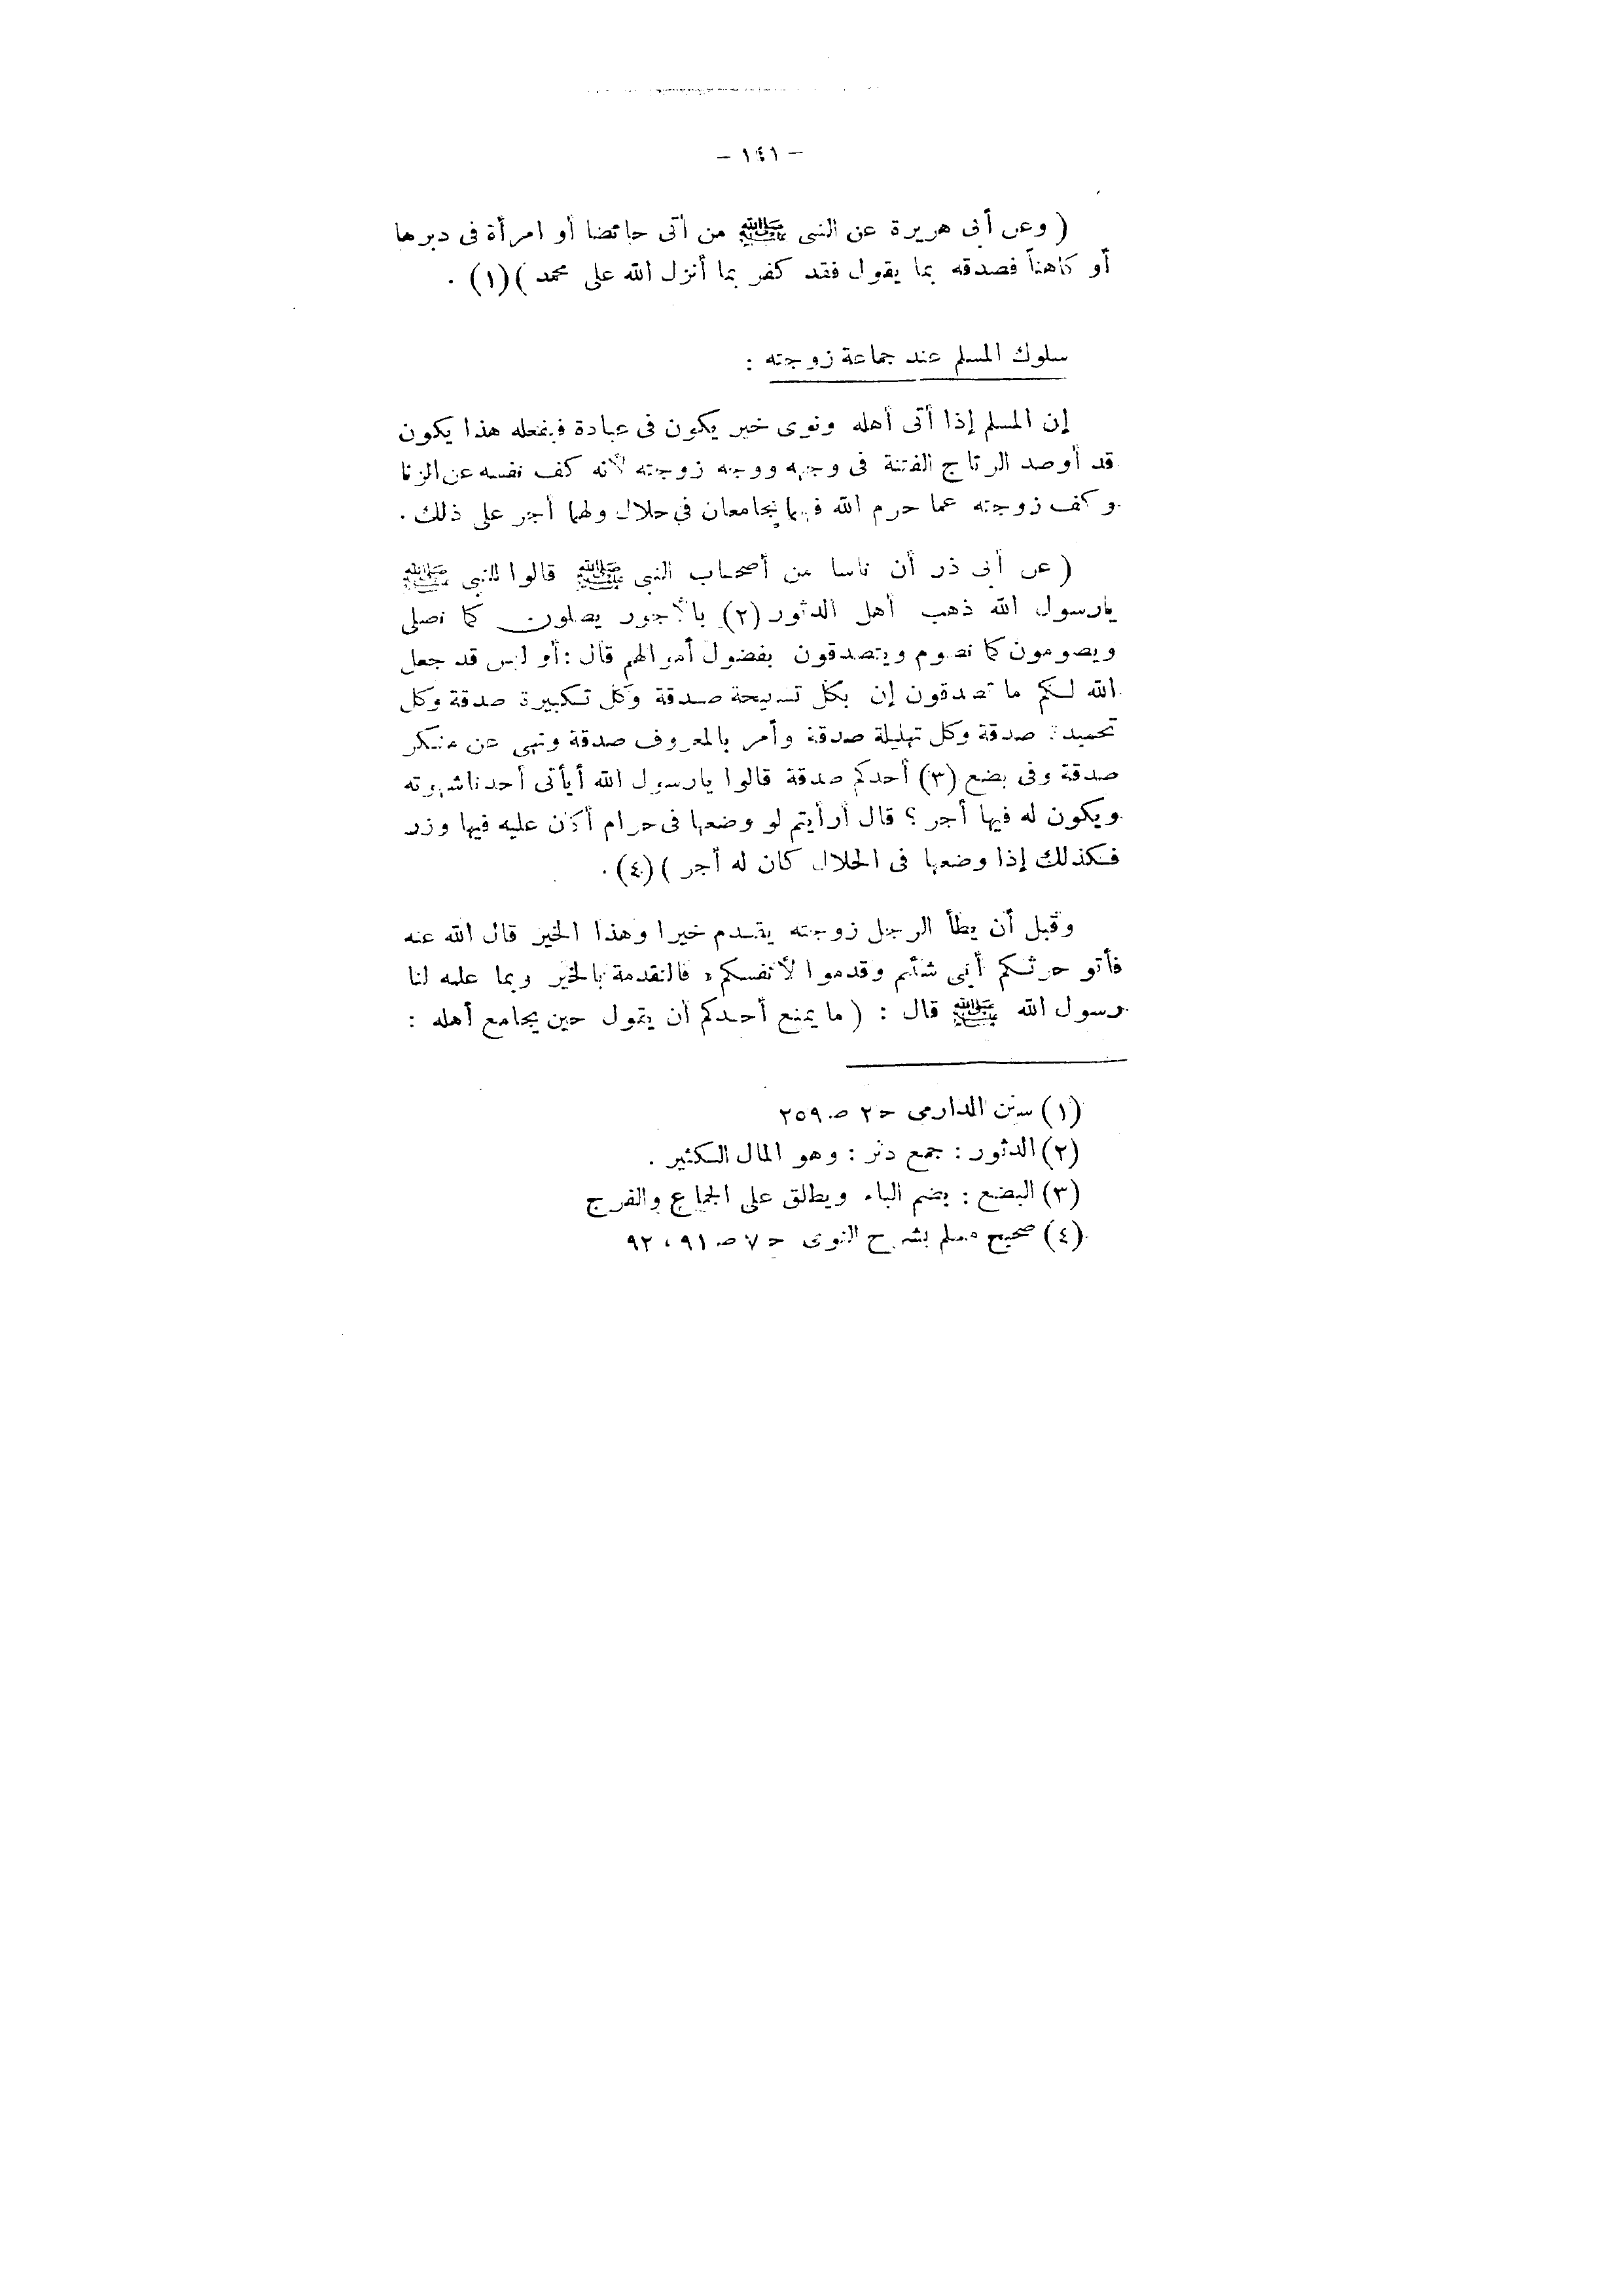 - ١٤١ -
( وعن أبى هريرة عن النبى ﷺ من أتى حائضا أو امرأة فى دبرها
أو كاهناً فصدقه بما يقول فقد كفر بما أنزل الله على محمد ) (١) .
سلوك المسلم عند جماعة زوجته :
إن المسلم إذا أتى أهله ونوى خير يكون فى عبادة فبفعله هذا يكون
قد أوصد الرتاج الفتنة فى وجهه ووجه زوجته لأنه كف نفسه عن الزنا
وكف زوجته عما حرم الله فهما يجامعان فى حلال ولهما أجر على ذلك .
( عن أبى ذر أن ناسا من أصحاب النبى ﷺ قالوا للنبى ﷺ
يارسول الله ذهب أهل الدثور (٢) بالأجور يصلون كما نصلى
ويصومون كما نصوم ويتصدقون بفضول أموالهم قال : أو ليس قد جعل
الله لكم ما تصدقون إن بكل تسبيحة صدقة وكل تكبيرة صدقة وكل
تحميدة صدقة وكل تهليلة صدقة وأمر بالمعروف صدقة ونهى عن منكر
صدقة وفى بضع (٣) أحدكم صدقة قالوا يارسول الله أيأتى أحدنا شهوته
ويكون له فيها أجر ؟ قال أرأيتم لو وضعها فى حرام أكان عليه فيها وزر
فكذلك إذا وضعها فى الحلال كان له أجر ) (٤) .
وقبل أن يطأ الرجل زوجته يقدم خيرا وهذا الخير قال الله عنه
فأتو حرثكم أنى شئتم وقدموا لأنفسكم « فالتقدمة بالخير وبما علمه لنا
رسول الله ﷺ قال : ( ما يمنع أحدكم أن يقول حين يجامع أهله :
(١) سنن الدارمى ح ٢ ص ٢٥٩
(٢) الدثور : جمع دثر : وهو المال الكثير .
(٣) البضع : بضم الباء ويطلق على الجماع والفرج
(٤) صحيح مسلم بشرح النووى ح ٧ ص ٩١ ، ٩٢